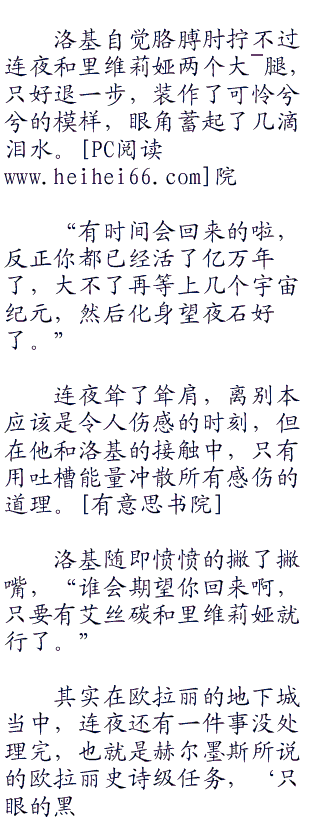 洛基自觉胳膊肘拧不过
连夜和里维莉娅两个大¯腿，
只好退一步，装作了可怜兮
兮的模样，眼角蓄起了几滴
泪水。[PC阅读
www.heihei66.com]院
“有时间会回来的啦，
反正你都已经活了亿万年
了，大不了再等上几个宇宙
纪元，然后化身望夜石好
了。”
连夜耸了耸肩，离别本
应该是令人伤感的时刻，但
在他和洛基的接触中，只有
用吐槽能量冲散所有感伤的
道理。[有意思书院]
洛基随即愤愤的撇了撇
嘴，“谁会期望你回来啊，
只要有艾丝碳和里维莉娅就
行了。”
其实在欧拉丽的地下城
当中，连夜还有一件事没处
理完，也就是赫尔墨斯所说
的欧拉丽史诗级任务，‘只
眼的黑